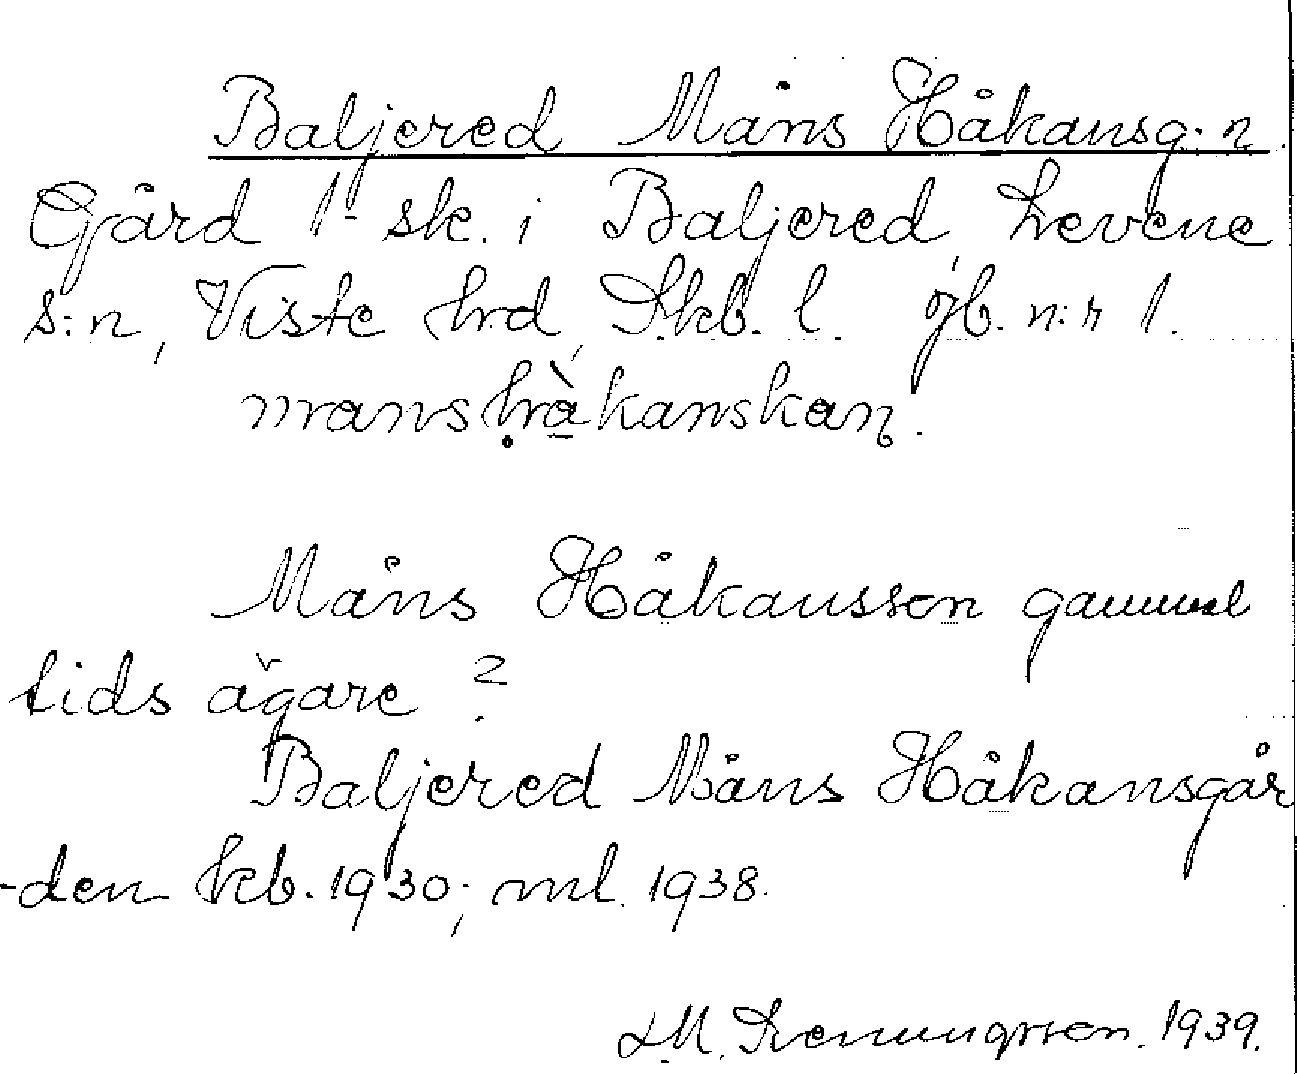 Baljered Måns Håkansg:n
Gård 1 sk. i Baljered, Levene
s:n, Viste hrd, Skb. l. jb. n:r 1.
Måns Håkansson gammal
tids ägare?
Baljered Måns Håkansgår
-den kb. 1930; ml. 1938.
1939.